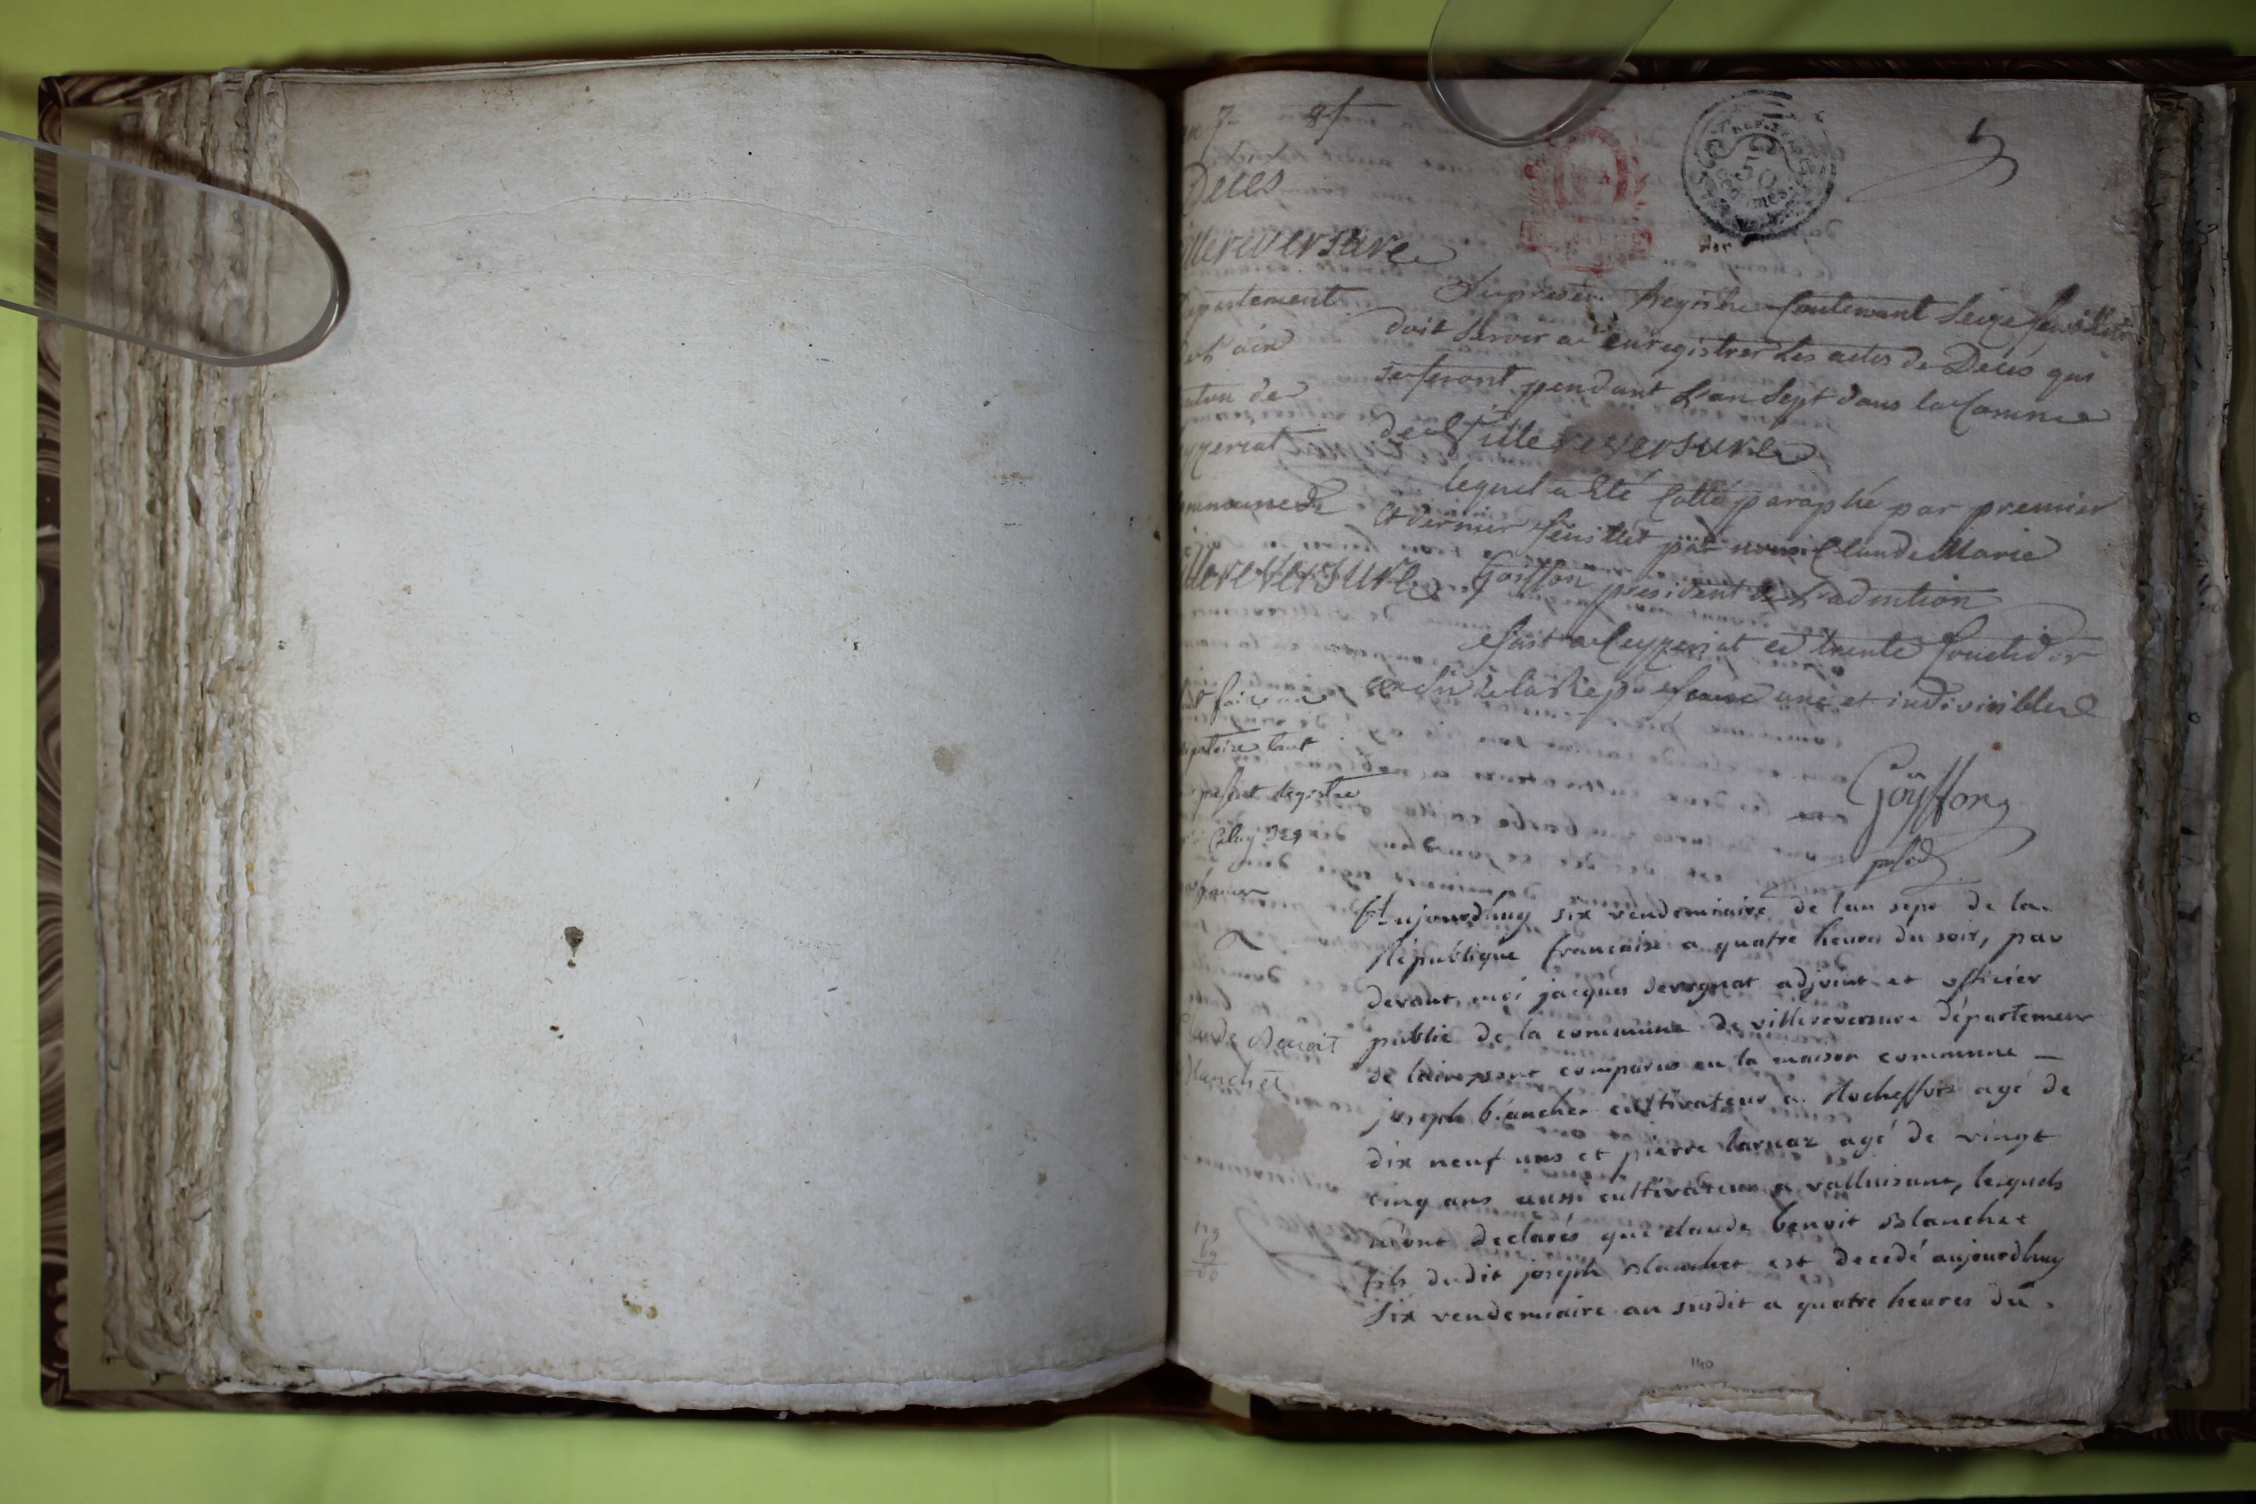 an 7
Déces
Villereversure
Departement
de l'ain
Canton de
Ceyzeriat
Commune de
Villereversure
présent Registre
Claude Benoit
Blanchet
50
Centimes
Le présent Registre Contenant Seize feuillets
doit Servir a enregistrer les actes de Décés qui
se feront pendant L'an Sept dans la Commune
de Villereversure
lequel a été Cotté paraphé par premier
Et dernier feuillet par nous Claude Marie
Goiffon président de L'admtion
fait a Ceyzeriat ce trente fructidor
an six de la Rep. franc une et indivisible
Goÿffon
presid
Aujourdhuy six vendemiaire de lan sept de la
République francaise a quatre heures du soir, par
devant moi jacques adjoint et officier
public de la commune de villereversure département
de lain sont comparus en la maison commune
joseph blanchet cultivateur a Rocheffort agé de
dix neuf ans et pierre larnaz agé de vingt
cinq ans aussi cultivateur a valluisant, lesquels
m'ont declarés que claude benoit Blanchet
fils dudit joseph blanchet est decedé aujourdhuy
six vendemiaire an susdit a quatre heures du
140